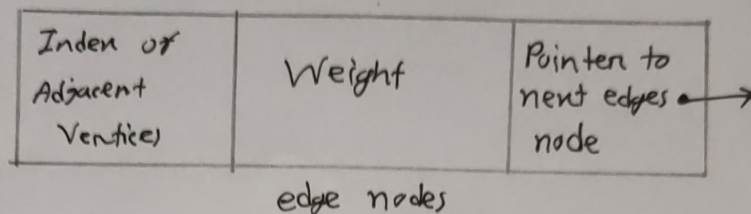 Index of
Adjacent
Vertices
Weight
Pointer to
next edges
node
edge nodes